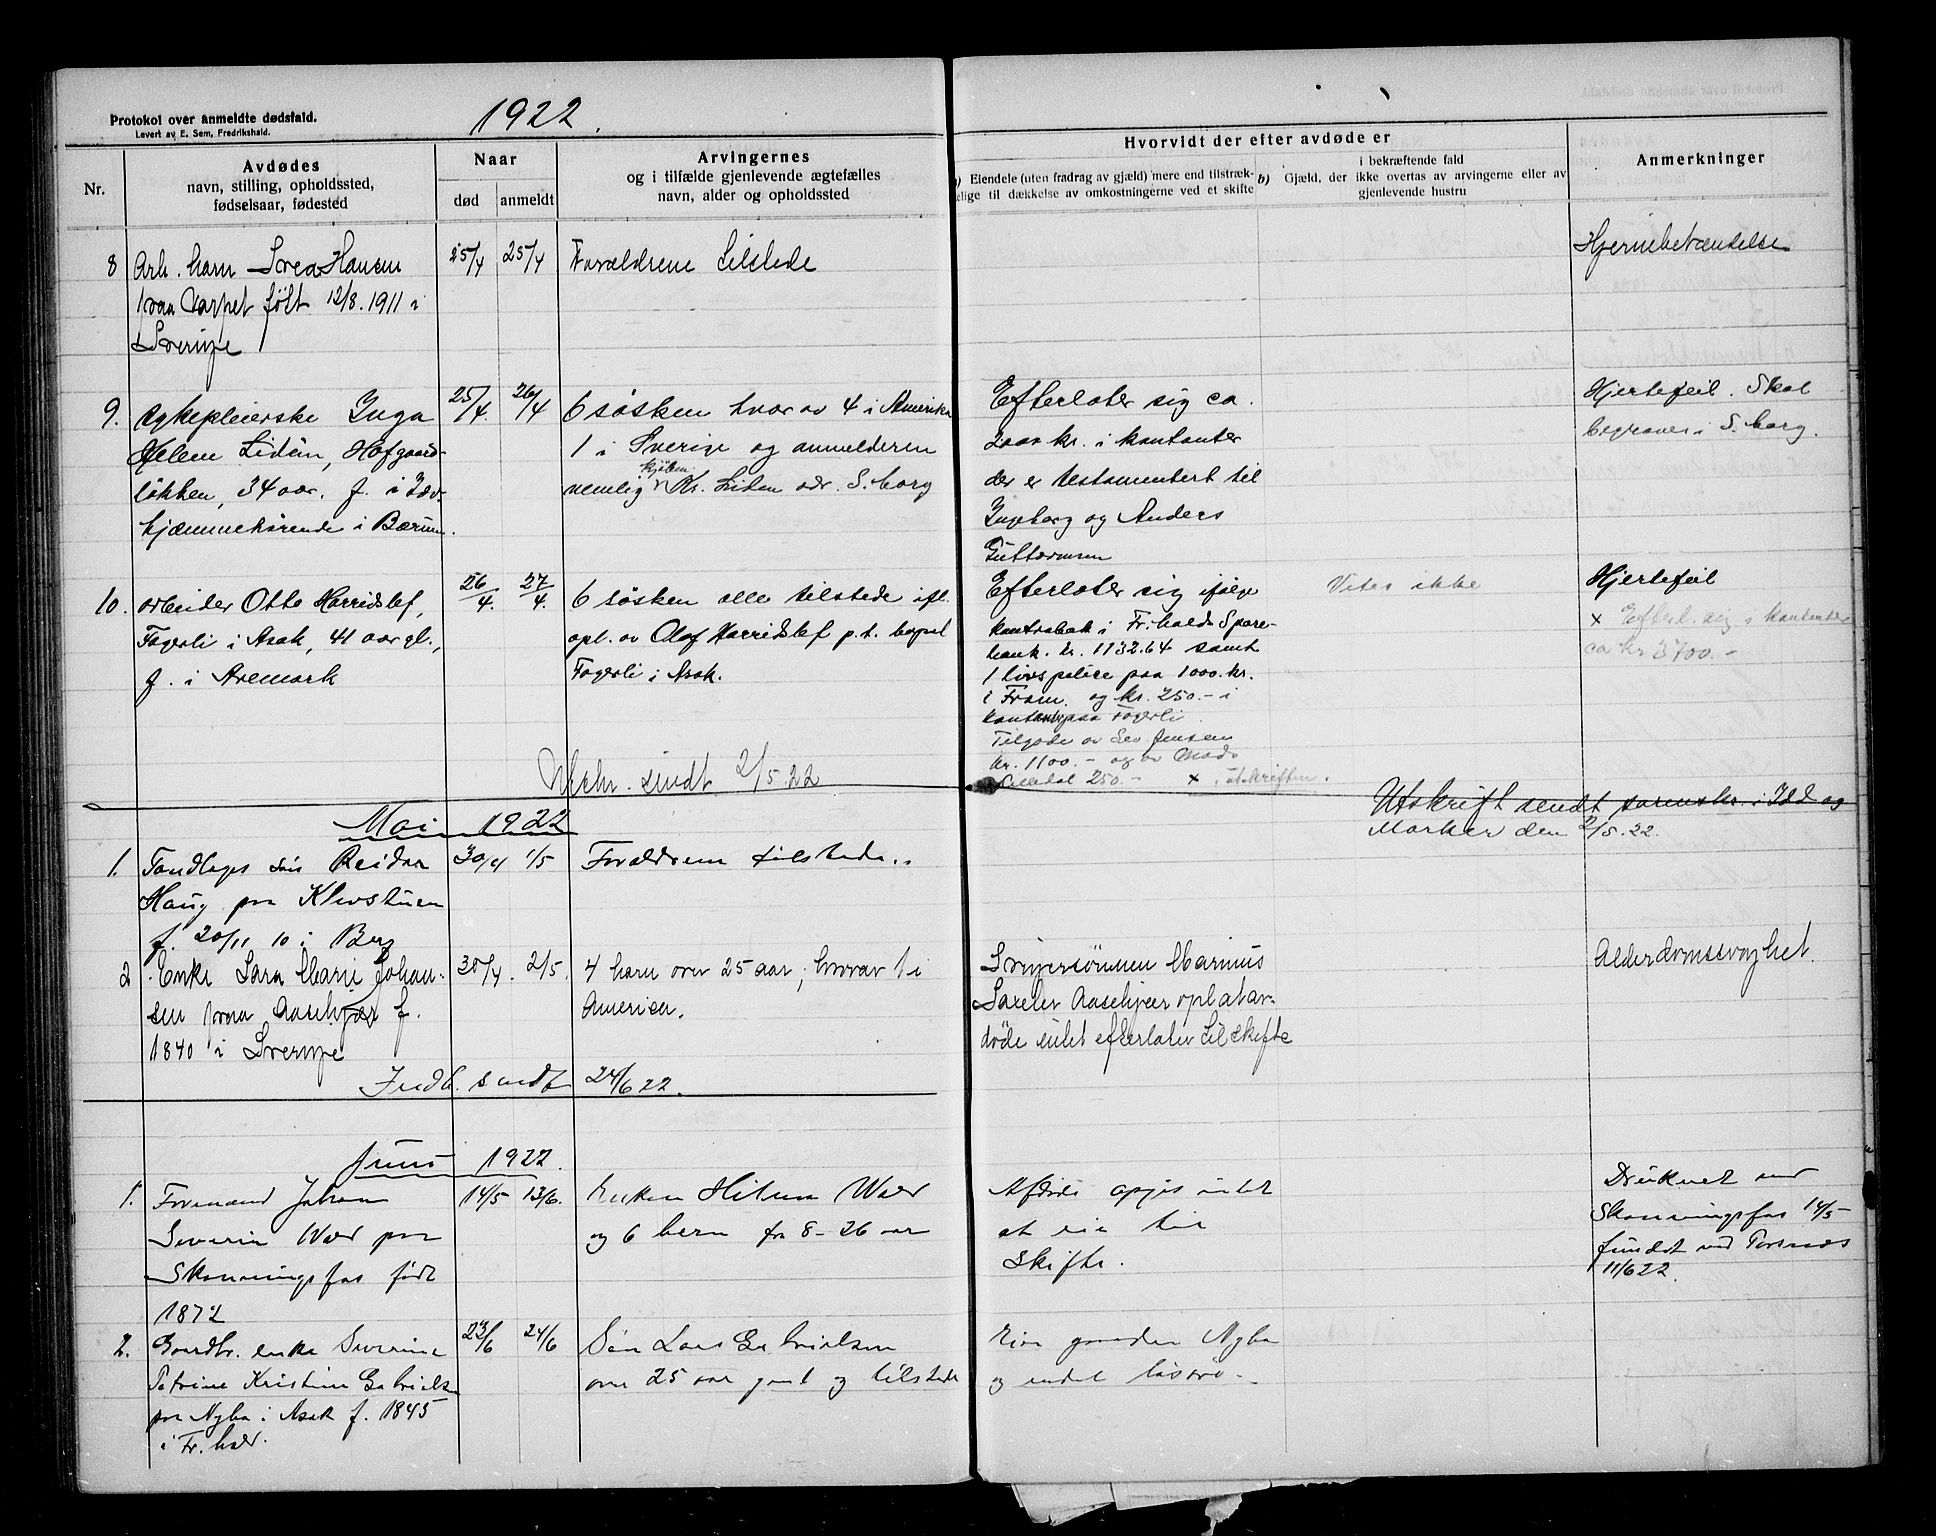 Protokol over anmeldte dødsfald.
Levert av E. Sem, Fredrikshald.
1922.
Nr.
Avdødes
navn, stilling, opholdssted,
fødselsaar, fødested
Naar
død
anmeldt
Arvingernes
og i tilfælde gjenlevende ægtefælles
navn, alder og opholdssted
Hvorvidt der efter avdøde er
Eiendele (uten fradrag av gjæld) mere end tilstræk-
elige til dækkelse av omkostningerne ved et skifte
b)
i bekræftende fald
Gjæld, der ikke overtas av arvingerne eller av
gjenlevende hustru
Anmerkninger
8
Arb. barn Svea Hansen
paa Varpet født 12/8.1911 i
Sverige
25/4
25/4
Forældrene tilstede
Hjernebetændelse
9.
Sykepleierske Inga
Helene Lidén, Hofgaard-
løkken, 34 aar. f. i Idd
hjemmehørende i Bærum.
25/4.
26/4
6 søsken hvor av 4 i Amerika
1 i Sverige og anmelderen
nemlig Kr. Liden adr. S.borg
Efterlater sig ca.
2000 kr. i kontanter
der er testamentert til
Ingeborg og Anders
Guttormsen
Hjertefeil. Skal
begraves i S.borg.
10.
arbeider Otto Harridslef,
Fagerli i Asak, 41 aar gl.,
f. i Aremark
26/4.
27/4.
6 søsken alle tilstede ifl.
opl. av Olaf Harridslef p.t. bopæl
Fagerli i Asak.
Efterlater sig ifølge
kontrabok i Fr.halds Spare-
bank. kr. 1132.64 samt
1 livspolice paa 1000. kr.
i Fram. og kr. 250.- i
kontanter paa Fagerli.
Tilgode av Sev. Jensen
kr. 1100.- og av Mads
250.- x i utskriften.
Vites ikke
Hjertefeil
x Efterl. sig i kontanter
ca kr 3700.-
sendt 2/5.22
Utskrift sendt sorenskr. i Idd og
Marker den 2/5.22.
Mai 1922
1.
Tandlæges søn Reidar
Haug paa Klevstuen
f. 20/11 10 i Berg
30/4
1/5
Forældrene tilstede.
2
Enke Sara Marie Johan-
sen paa Aasehjær f.
1840 i Sverige
30/4.
2/5.
4 barn over 25 aar; hvorav 1 i
Amerika.
Svigersønnen Marinus
Aasehjær opl at av-
døde intet efterlater til skifte
Alderdomssvaghet.
Indb. sendt 24/6 22.
Juni 1922.
1.
Formand Johan
Severin Wold paa
Skonningsfos født
1872
14/5
13/6.
Enken Hilma Wold
og 6 barn fra 8-26 aar
Afdøde opgis intet
at eie til
skifte.
Druknet ved
Skonningsfos 14/5
fundet ved Torsnæs
11/6 22.
2.
Gaardbr. enke Severine
Petrine Kristine Gabrielsen
paa Nybø i Asak f. 1845
i Fr.hald.
23/6
24/6
Søn Lars Gabrielsen
over 25 aar gml og tilstede
Eier gaarden Nybø
og endel løsøre.